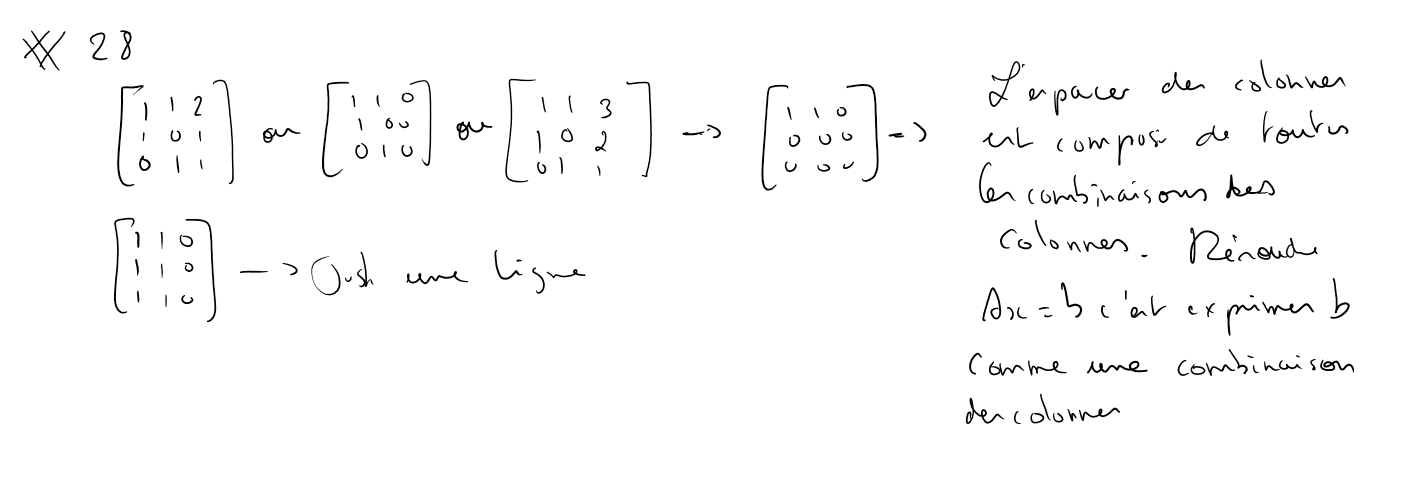 28
[1 1 2; 1 0 1; 0 1 1] ou [1 1 0; 1 0 0; 0 1 0] ou [1 1 3; 1 0 2; 0 1 1] -> [1 1 0; 0 0 0; 0 0 0] ->
[1 1 0; 1 1 0; 1 1 0] -> Just une ligne
L'espaces des colonnes
est composé de toutes
les combinaisons des
colonnes. Résoudre
Ax = b c'est exprimer b
comme une combinaison
des colonnes